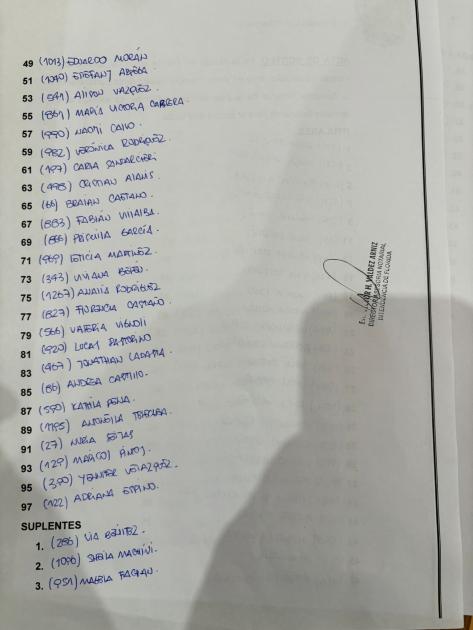 49 (1013) EDUARDO MORÁN
51 (1040) ESTEFANY
53 (541) ALISON VAZQUEZ.
55 (861) MARÍA VICTORIA CABRERA.
57 (990) NAOMI CAIVO.
59 (982) VERÓNICA RODRIGUEZ.
61 (197) CARLA
63 (498) CRISTIAN
65 (66) BRAIAN CAETANO.
67 (883) FABIÁN VILLALBA.
69 (866) PRISCILA GARCÍA.
71 (969) LETICIA MARTINEZ.
73 (343) VIVIANA
75 (1267) ANALÍA RODRIGUEZ
77 (827) FLORENCIA CASTAÑO.
79 (566) VALERIA VIGNOLI
81 (920) LUCAS PASTORINO
83 (467) JONATHAN
85 (86) ANDREA CASTILLO.
87 (590) KATHIA PEÑA.
89 (1195)
91 (27)
93 (129) MARCOS PINOS.
95 (390) YENNIFER VELAZQUEZ.
97 (122) ADRIANA ESPINO.
SUPLENTES
1. (286) LÍA BENÍTEZ.
2. (1096) SHEILA
3. (951)
H. VALDEZ ARNIZ
NOTARIAL
INTENDENCIA DE FLORIDA